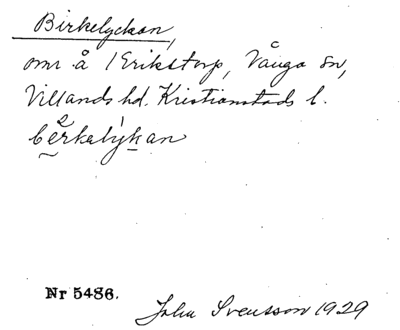 Birkelyckan,
omr å 1 Erikstorp, Vånga sn,
Villands hd. Kristianstads l.
bærkalykan
Nr 5486.
John Svensson 1929